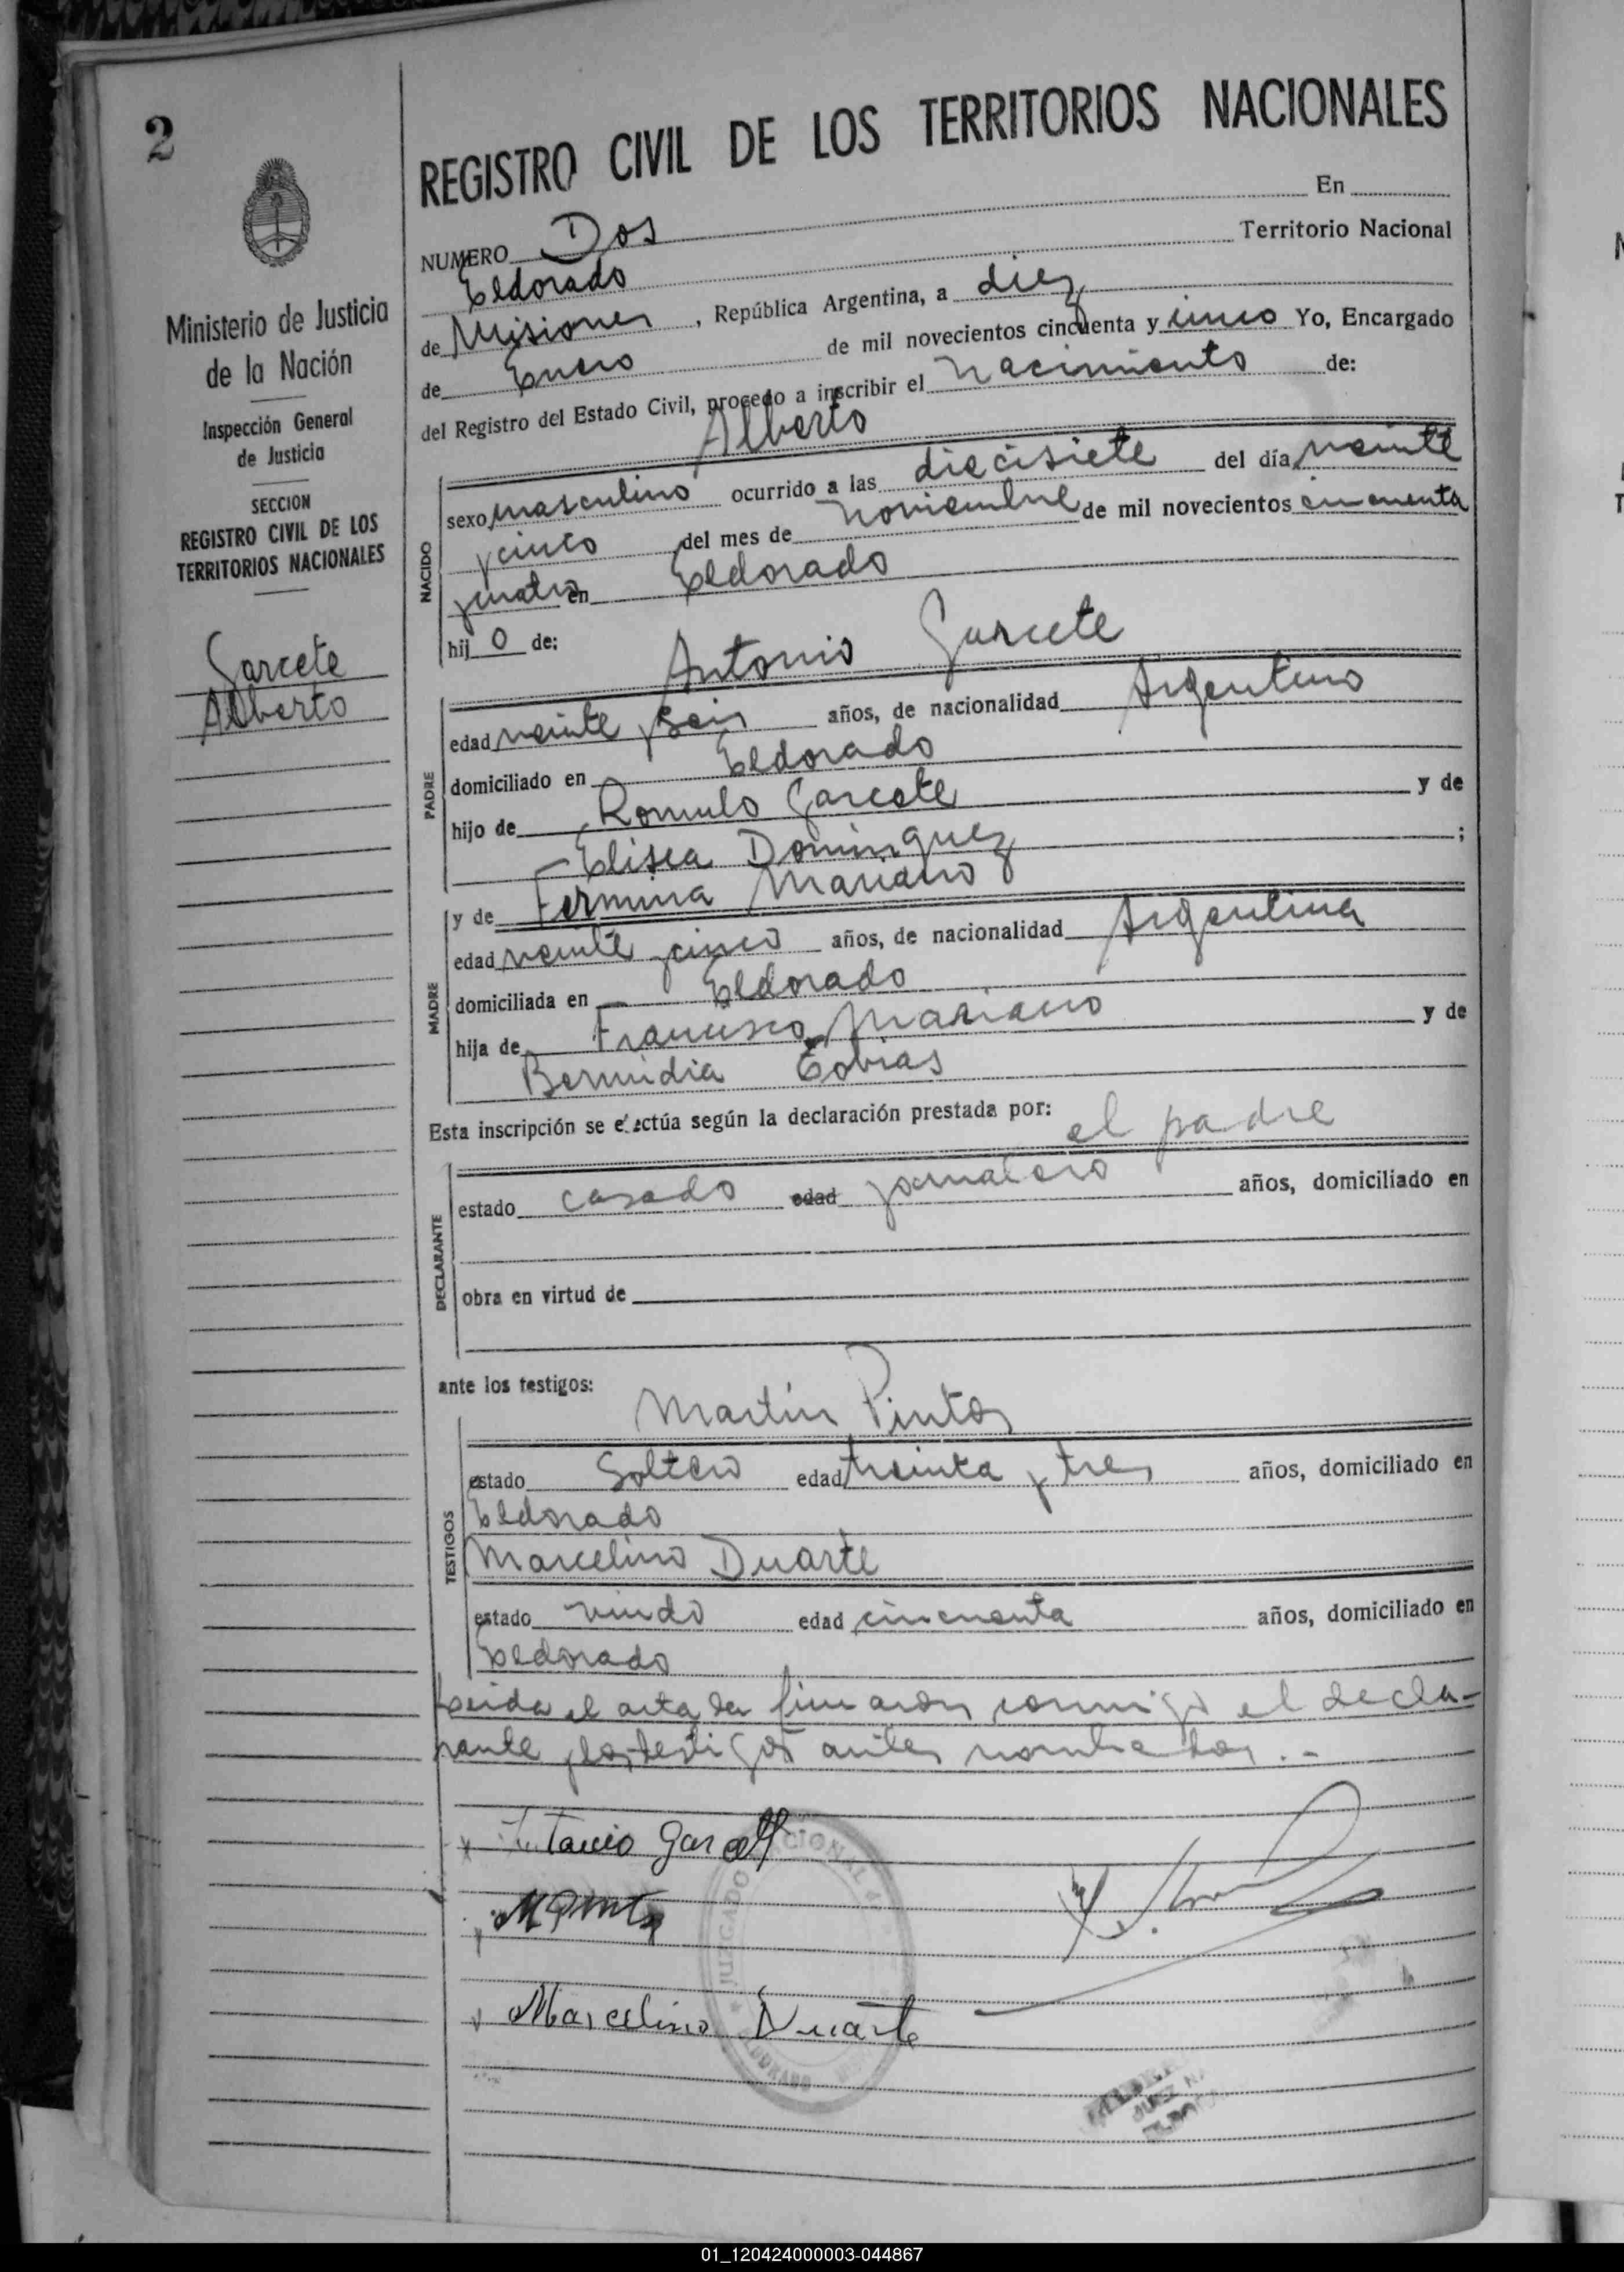 2
REGISTRO CIVIL DE LOS TERRITORIOS NACIONALES
NUMERO Dos En
Eldorado Territorio Nacional
de Misiones, República Argentina, a diez
de Enero de mil novecientos cincuenta y cinco Yo, Encargado
del Registro del Estado Civil, procedo a inscribir el Nacimiento de:
Alberto
sexo masculino ocurrido a las diecisiete del día veinte
y cinco del mes de noviembre de mil novecientos cincuenta
y cuatro en Eldorado
hij o de:
NACIDO
Antonio Garcete
edad veinte y seis años, de nacionalidad Argentino
domiciliado en Eldorado
hijo de Romulo Garcete y de
Elisea Dominguez ;
PADRE
y de Fermina Mariano
edad veinte y cinco años, de nacionalidad Argentina
domiciliada en Eldorado
hija de Francisco Mariano y de
Bernidia Tobias
MADRE
Esta inscripción se efectúa según la declaración prestada por:
el padre
estado casado edad jornalero años, domiciliado en
obra en virtud de
DECLARANTE
ante los testigos:
Martin Pintos
estado Soltero edad treinta y tres años, domiciliado en
Eldorado
Marcelino Duarte
estado viudo edad cincuenta años, domiciliado en
Eldorado
TESTIGOS
Leida el acta la firmaron conmigo el decla-
rante y los testigos antes nombrados.-
Antonio Garcete
M Pintos
Marcelino Duarte
JUZGADO NACIONAL
ELDORADO
Ministerio de Justicia
de la Nación
Inspección General
de Justicia
SECCION
REGISTRO CIVIL DE LOS
TERRITORIOS NACIONALES
Garcete
Alberto
01_120424000003-044867